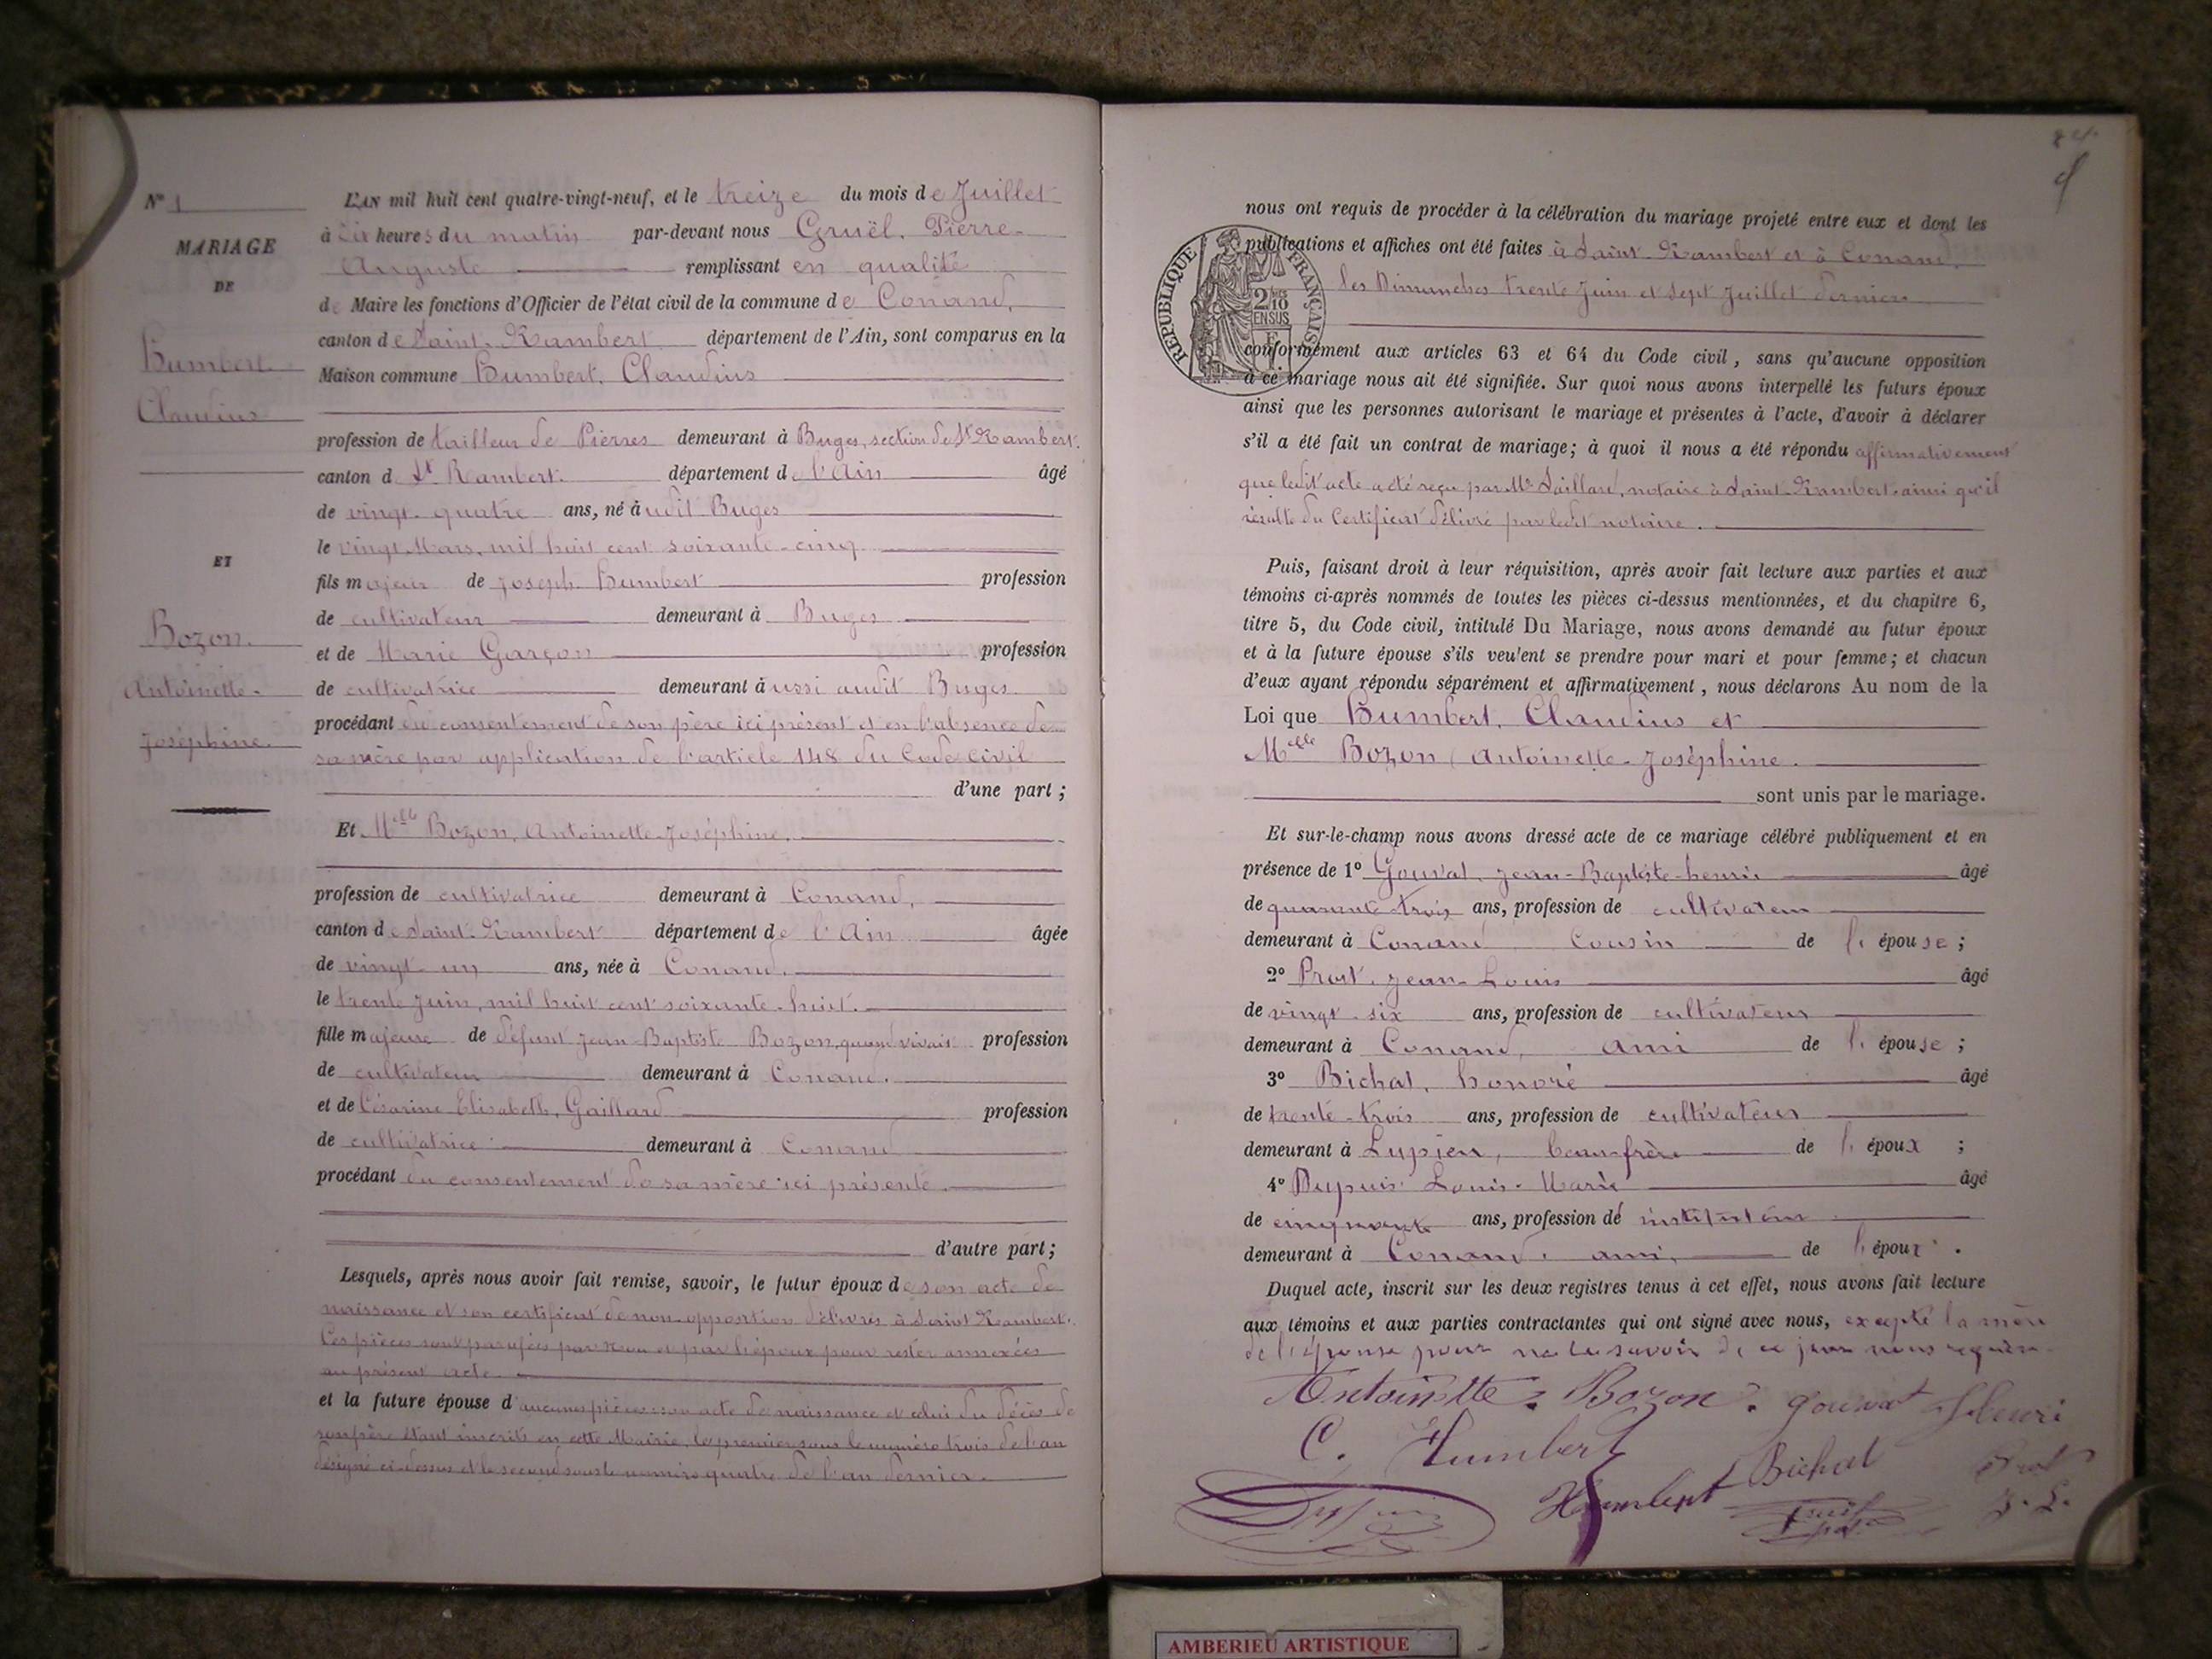 N° 1
MARIAGE
DE
Humbert
Claudius
ET
Bozon.
Antoinette-
Joséphine.
L'AN mil huit cent quatre-vingt-neuf, et le treize du mois de Juillet
à dix heures du matin par-devant nous Gruël, Pierre-
Auguste remplissant en qualité
de Maire les fonctions d'Officier de l'état civil de la commune de Conand,
canton de Saint-Rambert département de l'Ain, sont comparus en la
Maison commune Humbert, Claudius
profession de tailleur de Pierres demeurant à Buges, section de St Rambert.
canton d St Rambert. département de l'Ain âgé
de vingt-quatre ans, né audit Buges
le vingt Mars, mil huit cent soixante-cinq
fils majeur de Joseph Humbert profession
de cultivateur demeurant à Buges
et de Marie Garçon profession
de cultivatrice demeurant aussi audit Buges
procédant du consentement de son père ici présent et en l'absence de
sa mère par application de l'article 148 du Code civil
d'une part ;
Et Melle Bozon, Antoinette-Joséphine.
profession de cultivatrice demeurant à Conand,
canton de Saint-Rambert département de l'Ain âgée
de vingt-un ans, née à Conand.
le trente Juin, mil huit cent soixante-huit.
fille majeure de défunt Jean-Baptiste Bozon, quand vivait profession
de cultivateur demeurant à Conand.
et de Césarine Elisabeth, Gaillard profession
de cultivatrice demeurant à Conand
procédant du consentement de sa mère ici présente.
d'autre part ;
Lesquels, après nous avoir fait remise, savoir, le futur époux de son acte de
naissance et son certificat de non-opposition délivrés à Saint Rambert.
Ces pièces sont parafées par nous et par l'époux pour rester annexées
au présent acte.
et la future épouse d'aucunes pièces : son acte de naissance et celui du décès de
son père étant inscrits en cette Mairie, le premier sous le numéro trois de l'an
désigné ci-dessus et le second sous le numéro quatre de l'an dernier.
nous ont requis de procéder à la célébration du mariage projeté entre eux et dont les
publications et affiches ont été faites à Saint-Rambert et à Conand,
les Dimanches trente Juin et sept Juillet derniers
RÉPUBLIQUE FRANÇAISE
2 10
EN SUS
conformément aux articles 63 et 64 du Code civil, sans qu'aucune opposition
à ce mariage nous ait été signifiée. Sur quoi nous avons interpellé les futurs époux
ainsi que les personnes autorisant le mariage et présentes à l'acte, d'avoir à déclarer
s'il a été fait un contrat de mariage ; à quoi il nous a été répondu affirmativement
que ledit acte a été reçu par Me Saillard, notaire à Saint-Rambert, ainsi qu'il
résulte du Certificat délivré par ledit notaire.
Puis, faisant droit à leur réquisition, après avoir fait lecture aux parties et aux
témoins ci-après nommés de toutes les pièces ci-dessus mentionnées, et du chapitre 6,
titre 5, du Code civil, intitulé Du Mariage, nous avons demandé au futur époux
et à la future épouse s'ils veulent se prendre pour mari et pour femme ; et chacun
d'eux ayant répondu séparément et affirmativement, nous déclarons Au nom de la
Loi que Humbert, Claudius et
Melle Bozon, Antoinette-Joséphine.
sont unis par le mariage.
Et sur-le-champ nous avons dressé acte de ce mariage célébré publiquement et en
présence de 1° Gouvat, Jean-Baptiste-henri âgé
de quarante-trois ans, profession de cultivateur
demeurant à Conand cousin de l'épouse ;
2° Prost, Jean-Louis âgé
de vingt-six ans, profession de cultivateur
demeurant à Conand, ami de l'épouse ;
3° Bichat, honoré âgé
de trente-trois ans, profession de cultivateur
demeurant à Lupieu, beau-frère de l'époux ;
4° Dupuis Louis-Marie âgé
de cinquante ans, profession de instituteur
demeurant à Conand, ami, de l'époux.
Duquel acte, inscrit sur les deux registres tenus à cet effet, nous avons fait lecture
aux témoins et aux parties contractantes qui ont signé avec nous, excepté la mère
de l'épouse pour ne le savoir de ce par nous requise.
Antoinette Bozon. gouvat henri
C. Humbert
Humbert Bichat Prost
J. L.
AMBERIEU ARTISTIQUE